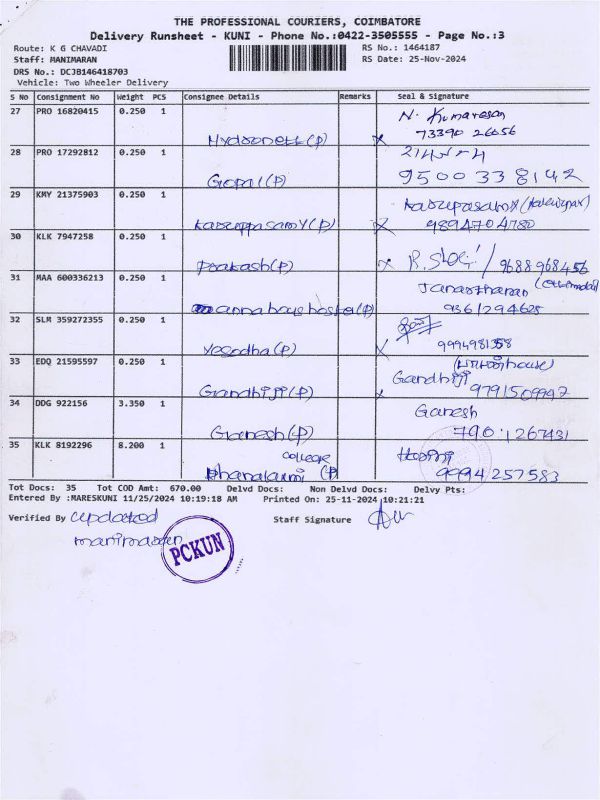 THE PROFESSIONAL COURIERS, COIMBATORE
Delivery Runsheet - KUNI - Phone No.:0422-3505555 - Page No.:3
Route: K G CHAVADI
RS No.: 1464187
Staff: MANIMARAN
RS Date: 25-Nov-2024
DRS No.: DCJB146418703
Vehicle: Two Wheeler Delivery
S No Consignment No Weight PCS Consignee Details Remarks Seal & Signature
27 PRO 16820415 0.250 1 N. Kumaresan
73390 26656
28 PRO 17292812 0.250 1
Gopal(P) 95003 38142
29 KMY 21375903 0.250 1
Karuppasamy(P) 9894704780
30 KLK 7947258 0.250 1
Prakash(P) 9688968456
31 MAA 600336213 0.250 1 Janarthanan
anna boys hostel(P) 9361294625
32 SLM 359272355 0.250 1
Yasodha(P) 9994981358
33 EDQ 21595597 0.250 1 Gandhiji
Gandhiji(P) 9791509997
34 DDG 922156 3.350 1 Ganesh
Ganesh(P)
35 KLK 8192296 8.200 1 college
Dhanalaxmi (P) 9994257583
Tot Docs: 35 Tot COD Amt: 670.00 Delvd Docs: Non Delvd Docs: Delvy Pts:
Entered By :MARESKUNI 11/25/2024 10:19:18 AM Printed On: 25-11-2024 10:21:21
Verified By updated
manimaran
Staff Signature
PCKUN